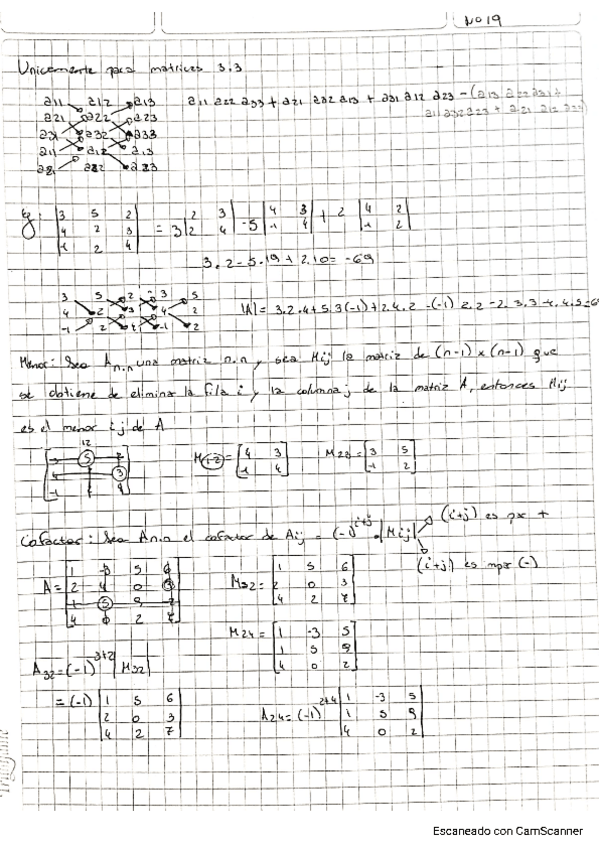 No 19
Unicamente para matrices 3.3
a11 a12 a13
a21 a22 a23
a31 a32 a33
a11 a12 a13
a21 a22 a23
a11 a22 a33 + a21 a32 a13 + a31 a12 a23 - (a13 a22 a31 +
a11 a32 a23 + a21 a12 a33)
Eg: |3 5 2| = 3 |2 3| -5 |4 3| + 2 |4 2|
|4 2 3| |2 4| |-1 4| |-1 2|
|-1 2 4|
3.2-5.19+2.10=-69
3 5 2 3 5
4 2 3 4 2
-1 2 4 -1 2
|A|= 3.2.4+5.3(-1)+2.4.2-(-1)2.2-2.3.3-4.4.5=-69
Menor: Sea An.n una matriz n.n y sea Mij la matriz de (n-1)x(n-1) que
se obtiene de elimina la fila i y la columna j de la matriz A, entonces Mij
es el menor ij de A
12
3 5 2
4 2 3
-1 2 4
M12= [4 3] M23= [3 5]
[-1 4] [-1 2]
Cofactor: Sea An.n el cofactor de Aij = (-1)^i+j . |Mij|
(i+j) es par +
(i+j) es impar (-)
A= [1 -3 5 6]
[2 4 0 3]
[1 5 9 7]
[4 0 2 7]
M32= [1 5 6]
[2 0 3]
[4 2 7]
M24= [1 -3 5]
[1 5 9]
[4 0 2]
A32=(-1)^3+2 |M32|
=(-1) |1 5 6|
|2 0 3|
|4 2 7|
A24= (-1)^2+4 |1 -3 5|
|1 5 9|
|4 0 2|
Escaneado con CamScanner